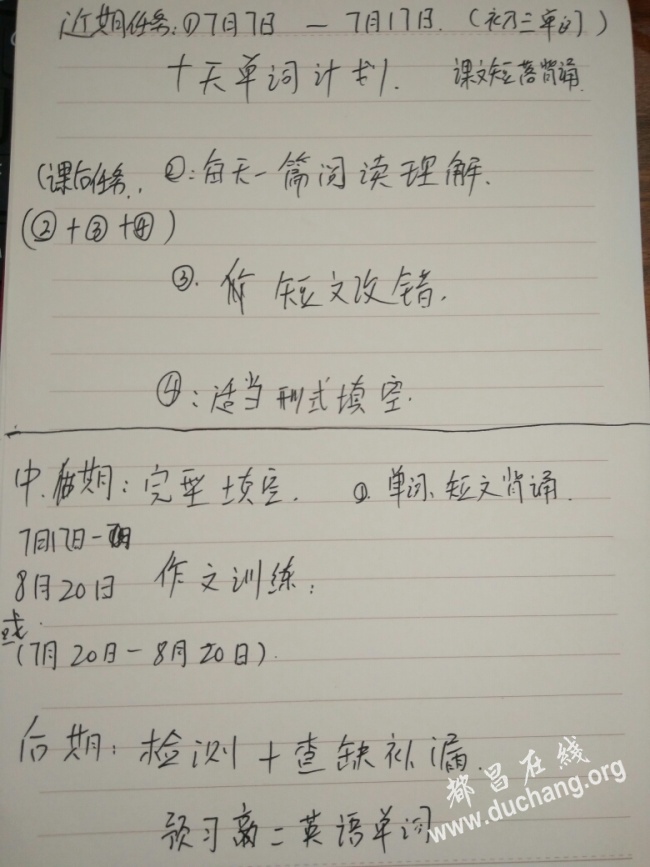 近期任务:①7月7日 — 7月17日.(初三单词)
十天单词计划. 课文短落背诵.
(课后任务, ②:每天一篇阅读理解.
(②+③+④)
③. 短文改错.
④:适当形式填空.
中期:完型填空. ①.单词、短文背诵.
7月17日-
8月20日 作文训练:
或
(7月20日-8月20日).
后期:检测+查缺补漏.
预习高二英语单词
都昌在线
www.duchang.org